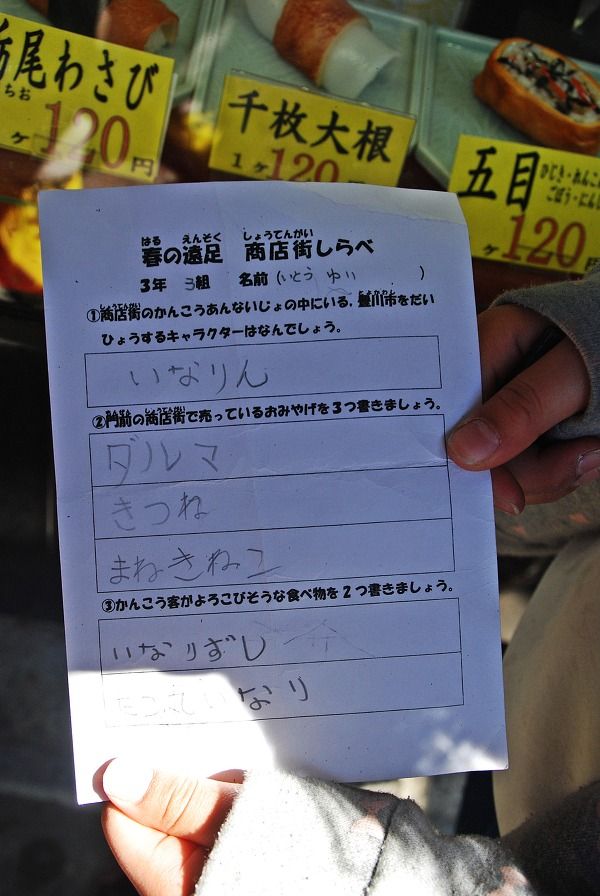 栃尾わさび
ちお
120円
千枚大根
1ヶ120
五目
ひじき・れんこん
ごぼう・にんじ
ヶ120円
はる えんそく しょうてんがい
春の遠足 商店街しらべ
3年 3組 名前(いとう ゆい )
しょうてんがい とよかわし
①商店街のかんこうあんないじょの中にいる、豊川市をだい
ひょうするキャラクターはなんでしょう。
いなりん
もんぜん しょうてんがい
②門前の商店街で売っているおみやげを3つ書きましょう。
ダルマ
きつね
まねきねこ
③かんこう客がよろこびそうな食べ物を2つ書きましょう。
いなりずし
いなり